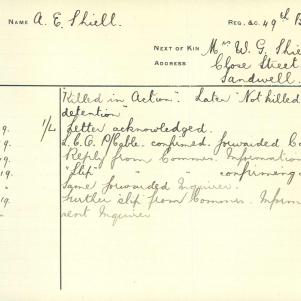 NAME A. E. Shiell. REG. &C. 49th B
NEXT OF KIN Mrs W. G. Shie
ADDRESS Close Street
Sandwell.
"Killed in Action". Later "Not killed
detention
9. 1/L Letter acknowledged.
19. Cable. confirmed. forwarded Co
19. Reply from Commr. Information
19. "Slip" " " confirming
" Same forwarded Inquirer.
19. Further slip from Commr. Inform
sent Inquirer